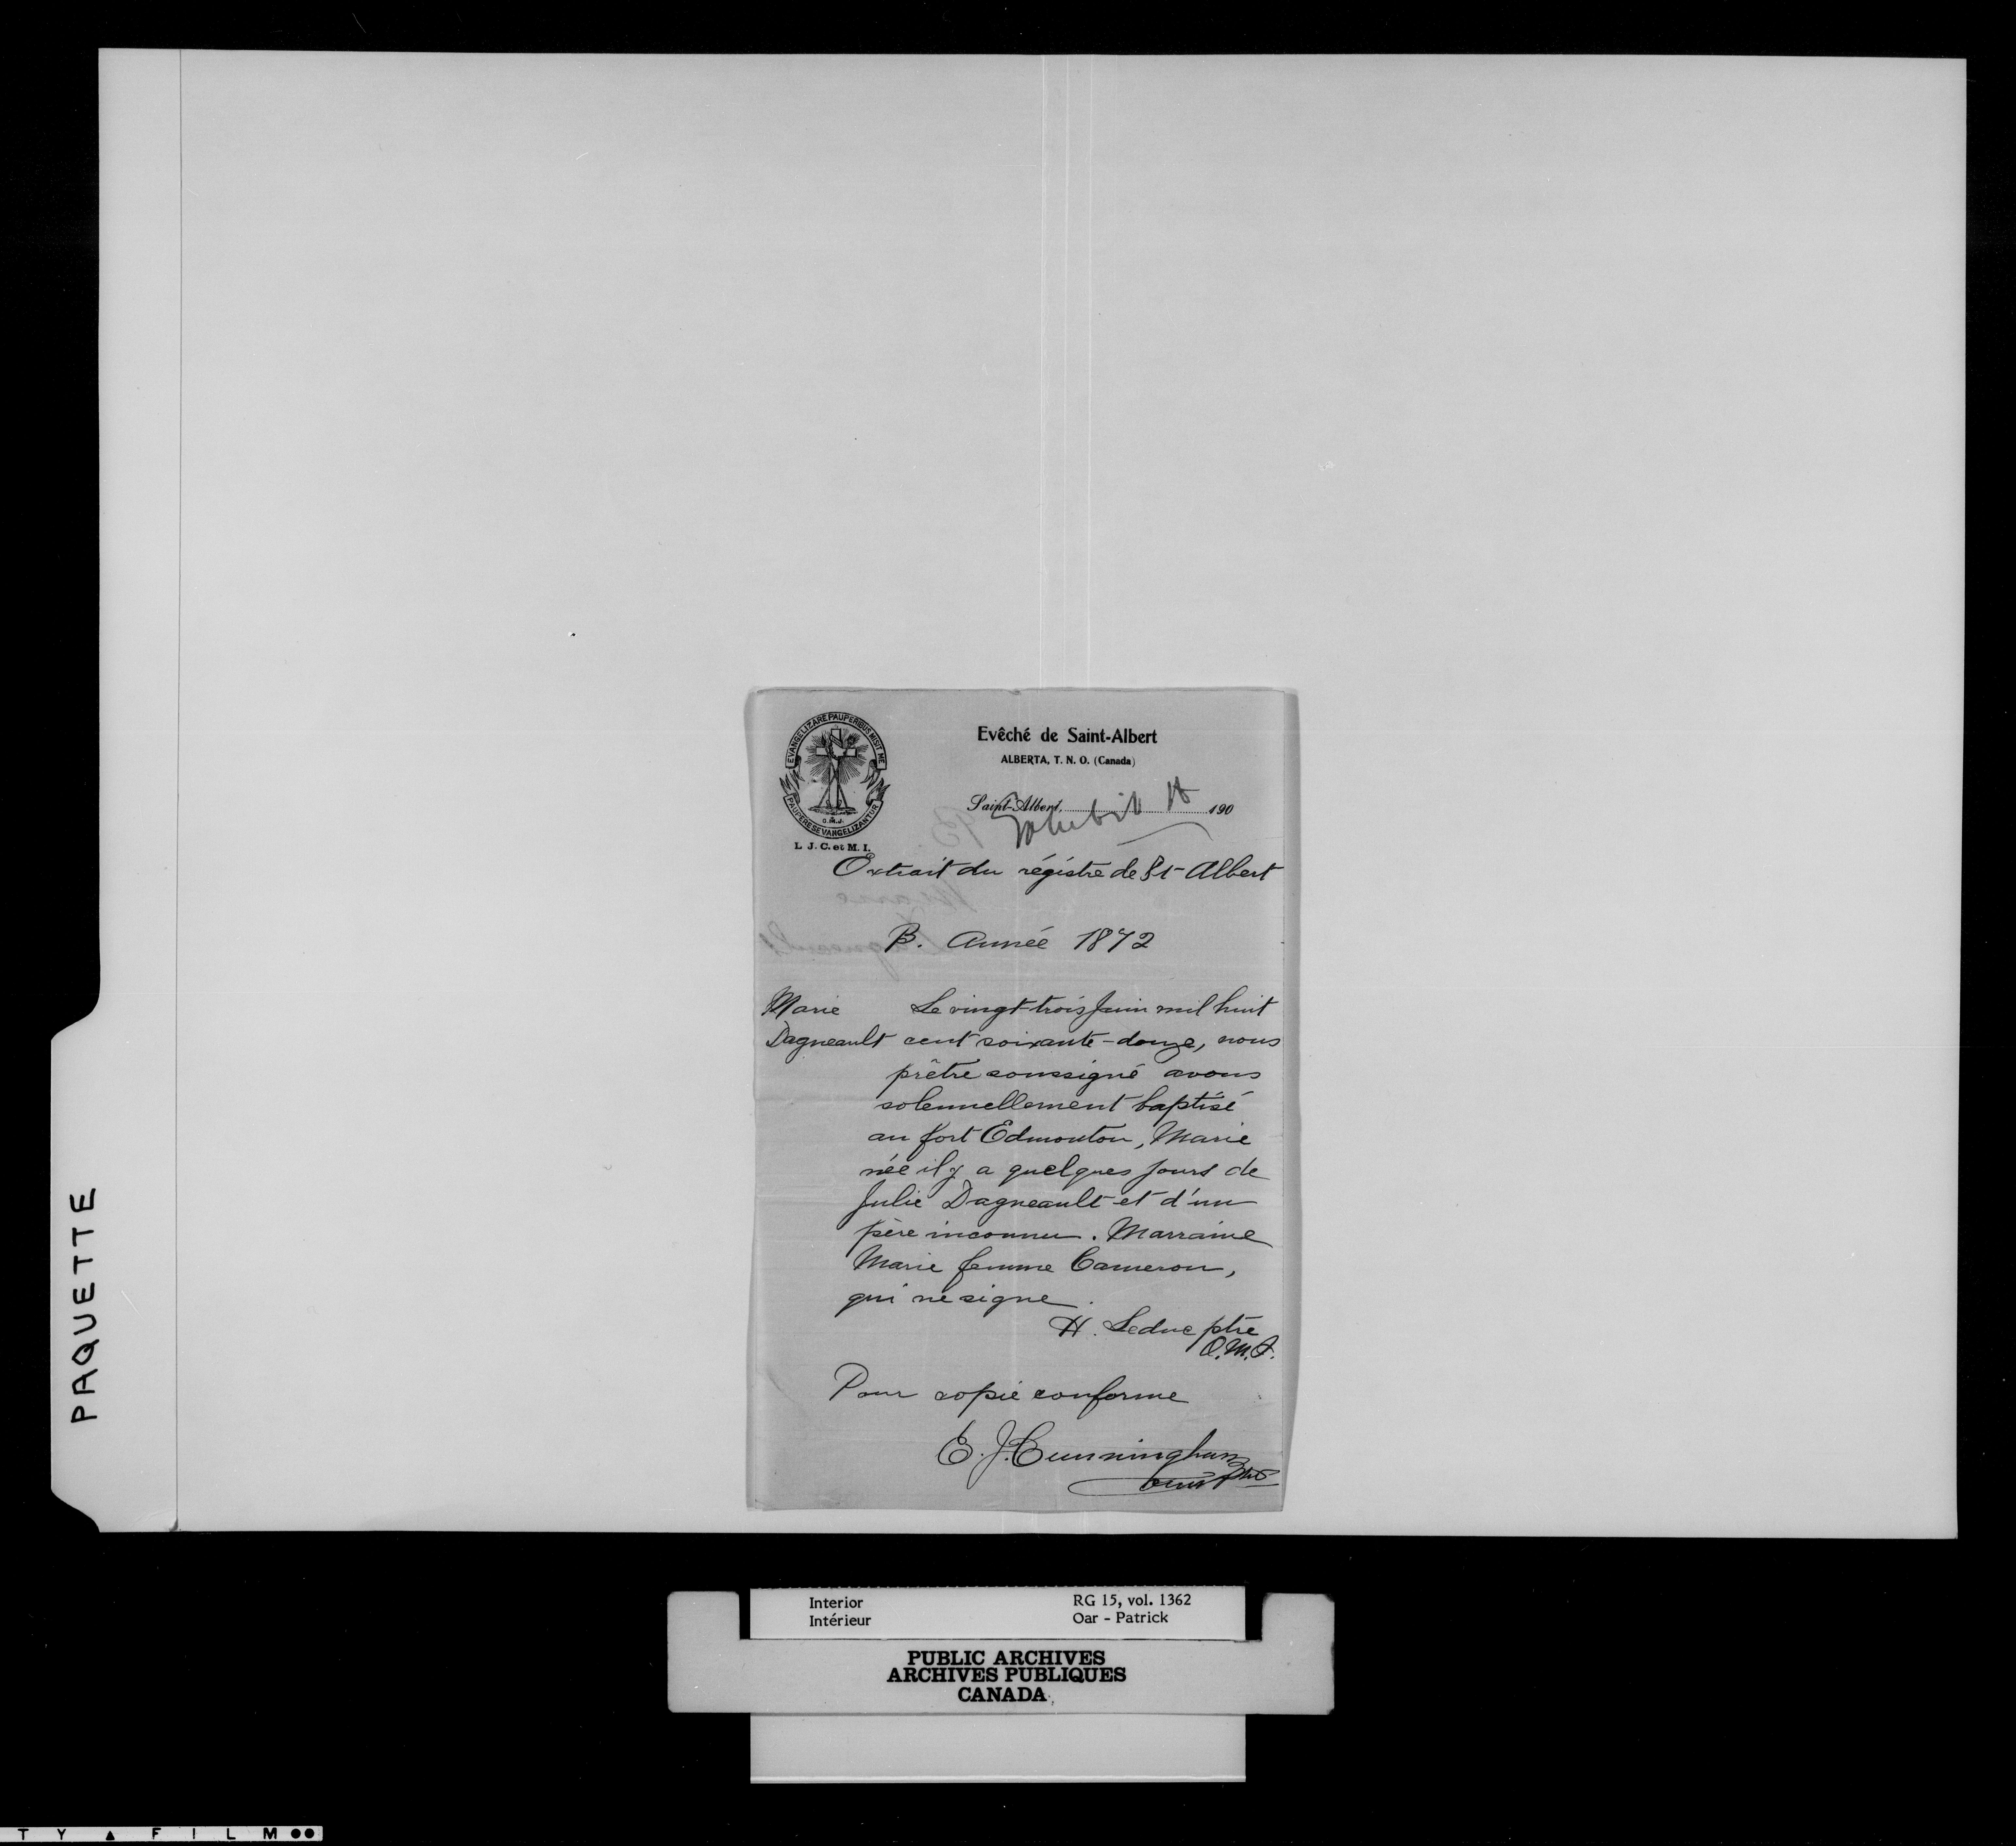 EVANGELIZARE PAUPERIBUS MISIT ME
PAUPERES EVANGELIZANTUR
O.M.J.
L. J. C. et M. I.
Evêché de Saint-Albert
ALBERTA, T. N. O. (Canada)
Saint-Albert, 190
Exhibit A
Extrait du régistre de St-Albert
B. Année 1872
Marie Le vingt-trois Juin mil huit
Dagneault cent soixante-douze, nous
prêtre soussigné avons
solennellement baptisé
au fort Edmonton, Marie
née il y a quelques jours de
Julie Dagneault et d'un
père inconnu. Marraine
Marie femme Cameron,
qui ne signe.
H. Leduc ptre
O.M.I.
Pour copie conforme
E. J. Cunningham
omi ptre
PAQUETTE
Interior RG 15, vol. 1362
Intérieur Oar - Patrick
PUBLIC ARCHIVES
ARCHIVES PUBLIQUES
CANADA
T Y ▲ F I L M ●●